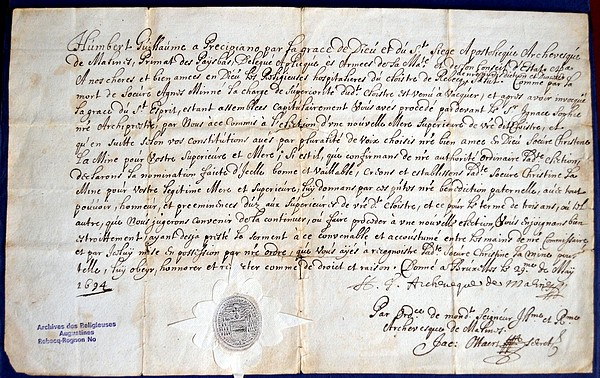 Humbert Guillaume a Precipiano par la grace de Dieu et du St. Siege Apostolique Archevesque
de Malines, Primat des Paysbas, Delegué Apostolique és Armées de Sa Maté. et de son Conseil d'Estat &c.
A nos cheres et bien amées en Dieu les Religieuses hospitalieres du Cloistre de Rebecq Salut. Comme par la
mort de Soeure Agnes Minne la charge de Superiorité dudt. Cloistre est venu a vacquer, et apres avoir invocque
la grace du St. Esprit, estant assemblées Capitulairement Vous avés procedé pardevant le Sr. Ignace
nre Archiprestre, par Nous a ce Commis à l'election d'vne nouvelle Mere Superieure de vre dit Cloistre, et
qu'en suitte selon vos constitutions avés par pluralité de voix choisis nre bien amée en Dieu Soeure Christine
La Mine pour vostre Superieure et Mere; Si est il, que confirmans de nre authorité ordinaire ladte election,
declarons la nomination faicte d'jcelle bonne et vaillable, Creons et establissons ladte Soeure Christine La
Mine pour vostre legitime Mere et Superieure, luy donnans par ces pntes nre benediction paternelle, avecq tout
pouvoir, honneur, et preeminences deuz aux Superieures de vre dt. Cloistre, et ce pour le terme de trois ans, ou tel
autre, que Nous jugerons convenir de la continuer, ou faire proceder à vne nouvelle election Vous enjoignans bien
estroittement, ayant deja presté le serment a ce convenable et accoustumé entre les mains de nre Commissaire
et par jceluy mise en possession par nre ordre, que Vous ayés a recognoistre ladte Soeure Christine La Mine pour
telle, luy obeyr, honnorer et comme de droict et raison. Donné a Bruxelles le 29e. de May
1694
H. G. Archevesque de Malines
Par Ordce de mondt. Seigneur Illme et Rme
Archevesque de Malines
Jac: Secret
Archives des Religieuses
Augustines
Rebecq-Rognon No